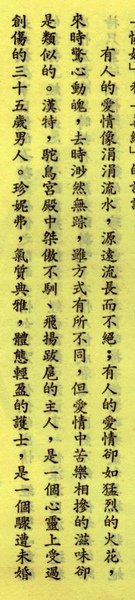 有人的愛情像涓涓流水，源遠流長而不絕；有人的愛情卻如猛烈的火花，
來時驚心動魄，去時渺然無踪，雖方式有所不同，但愛情中苦樂相摻的滋味卻
是類似的。漢特，駝鳥宮殿中桀傲不馴、飛揚跋扈的主人，是一個心靈上受過
創傷的三十五歲男人。珍妮弗，氣質典雅，體態輕盈的護士，是一個驟遭未婚